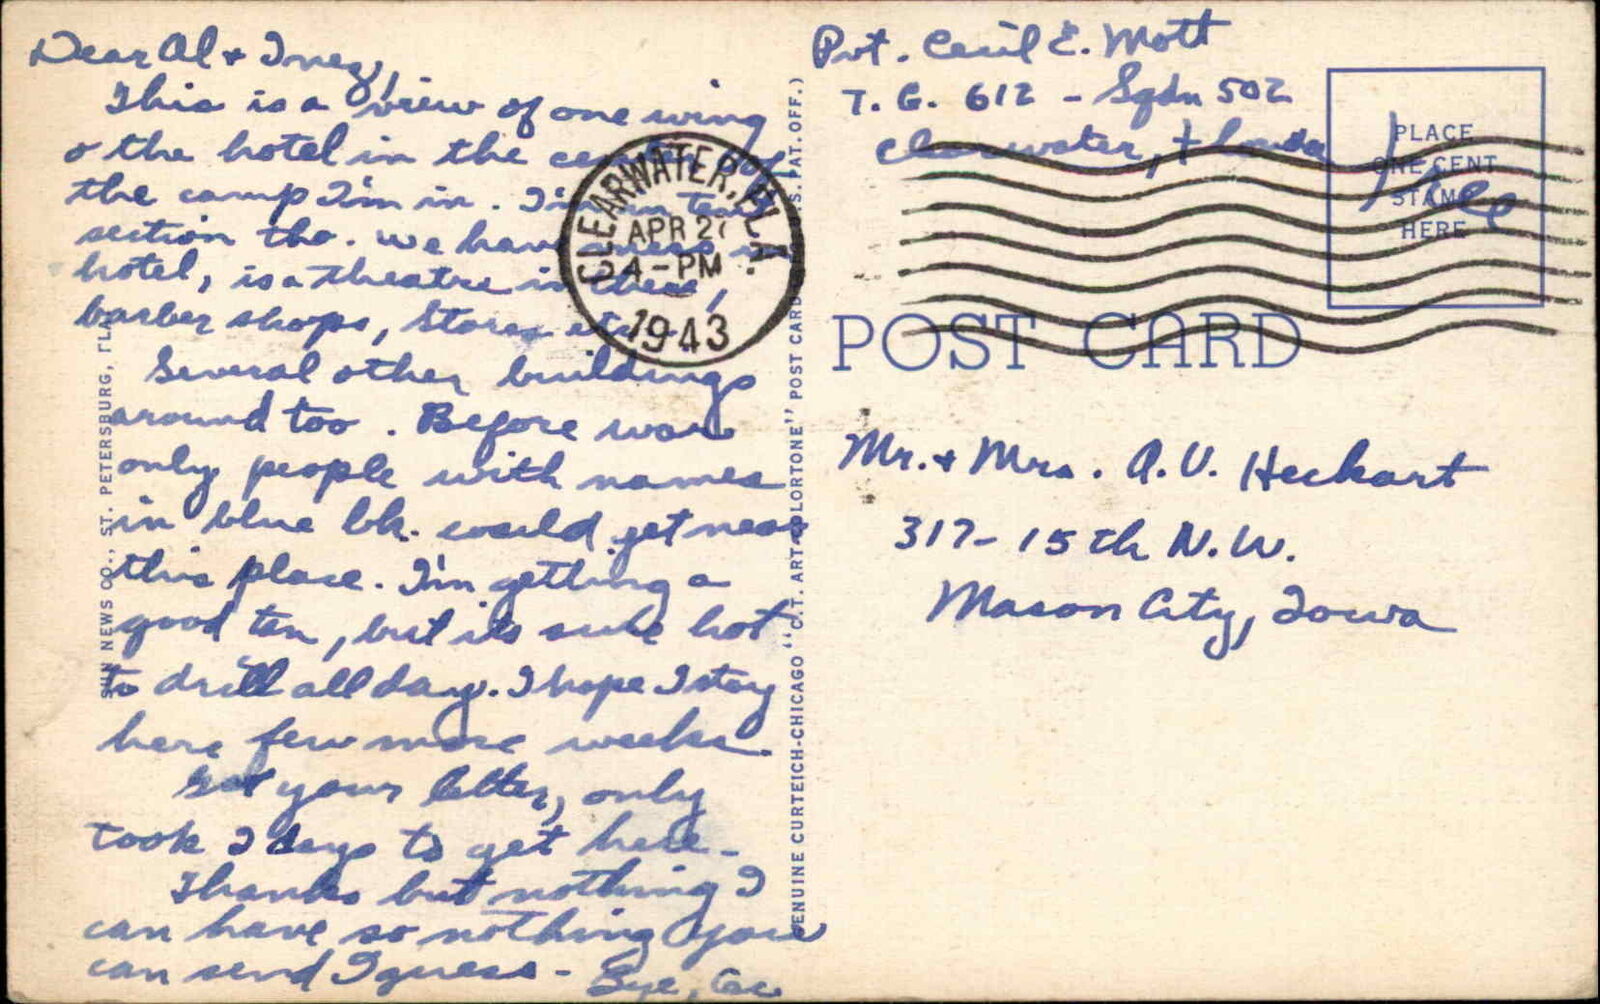 Dear Al + Inez,
This is a view of one wing
o the hotel in the center of
the camp I'm in. I'm in tent
section tho. We have mess in
hotel, is a theatre in there,
barber shops, stores etc.
Several other buildings
around too. Before war
only people with names
in blue bk. could get near
this place. I'm getting a
good tan, but its sure hot
to drill all day. I hope I stay
here few more weeks.
Got your letter, only
took 2 days to get here-
Thanks but nothing I
can have so nothing you
can send I guess - Bye, Cec
SUN NEWS CO., ST. PETERSBURG, FLA.
GENUINE CURTEICH-CHICAGO "C.T. ART-COLORTONE" POST CARD (U.S. PAT. OFF.)
Pvt. Cecil E. Mott
T. G. 612 - Sqdn 502
Clearwater, Florida
Free
PLACE
ONE CENT
STAMP
HERE
CLEARWATER, FLA.
APR 27
4-PM
1943
POST CARD
Mr. + Mrs. A. V. Heckart
317- 15th N.W.
Mason City, Iowa